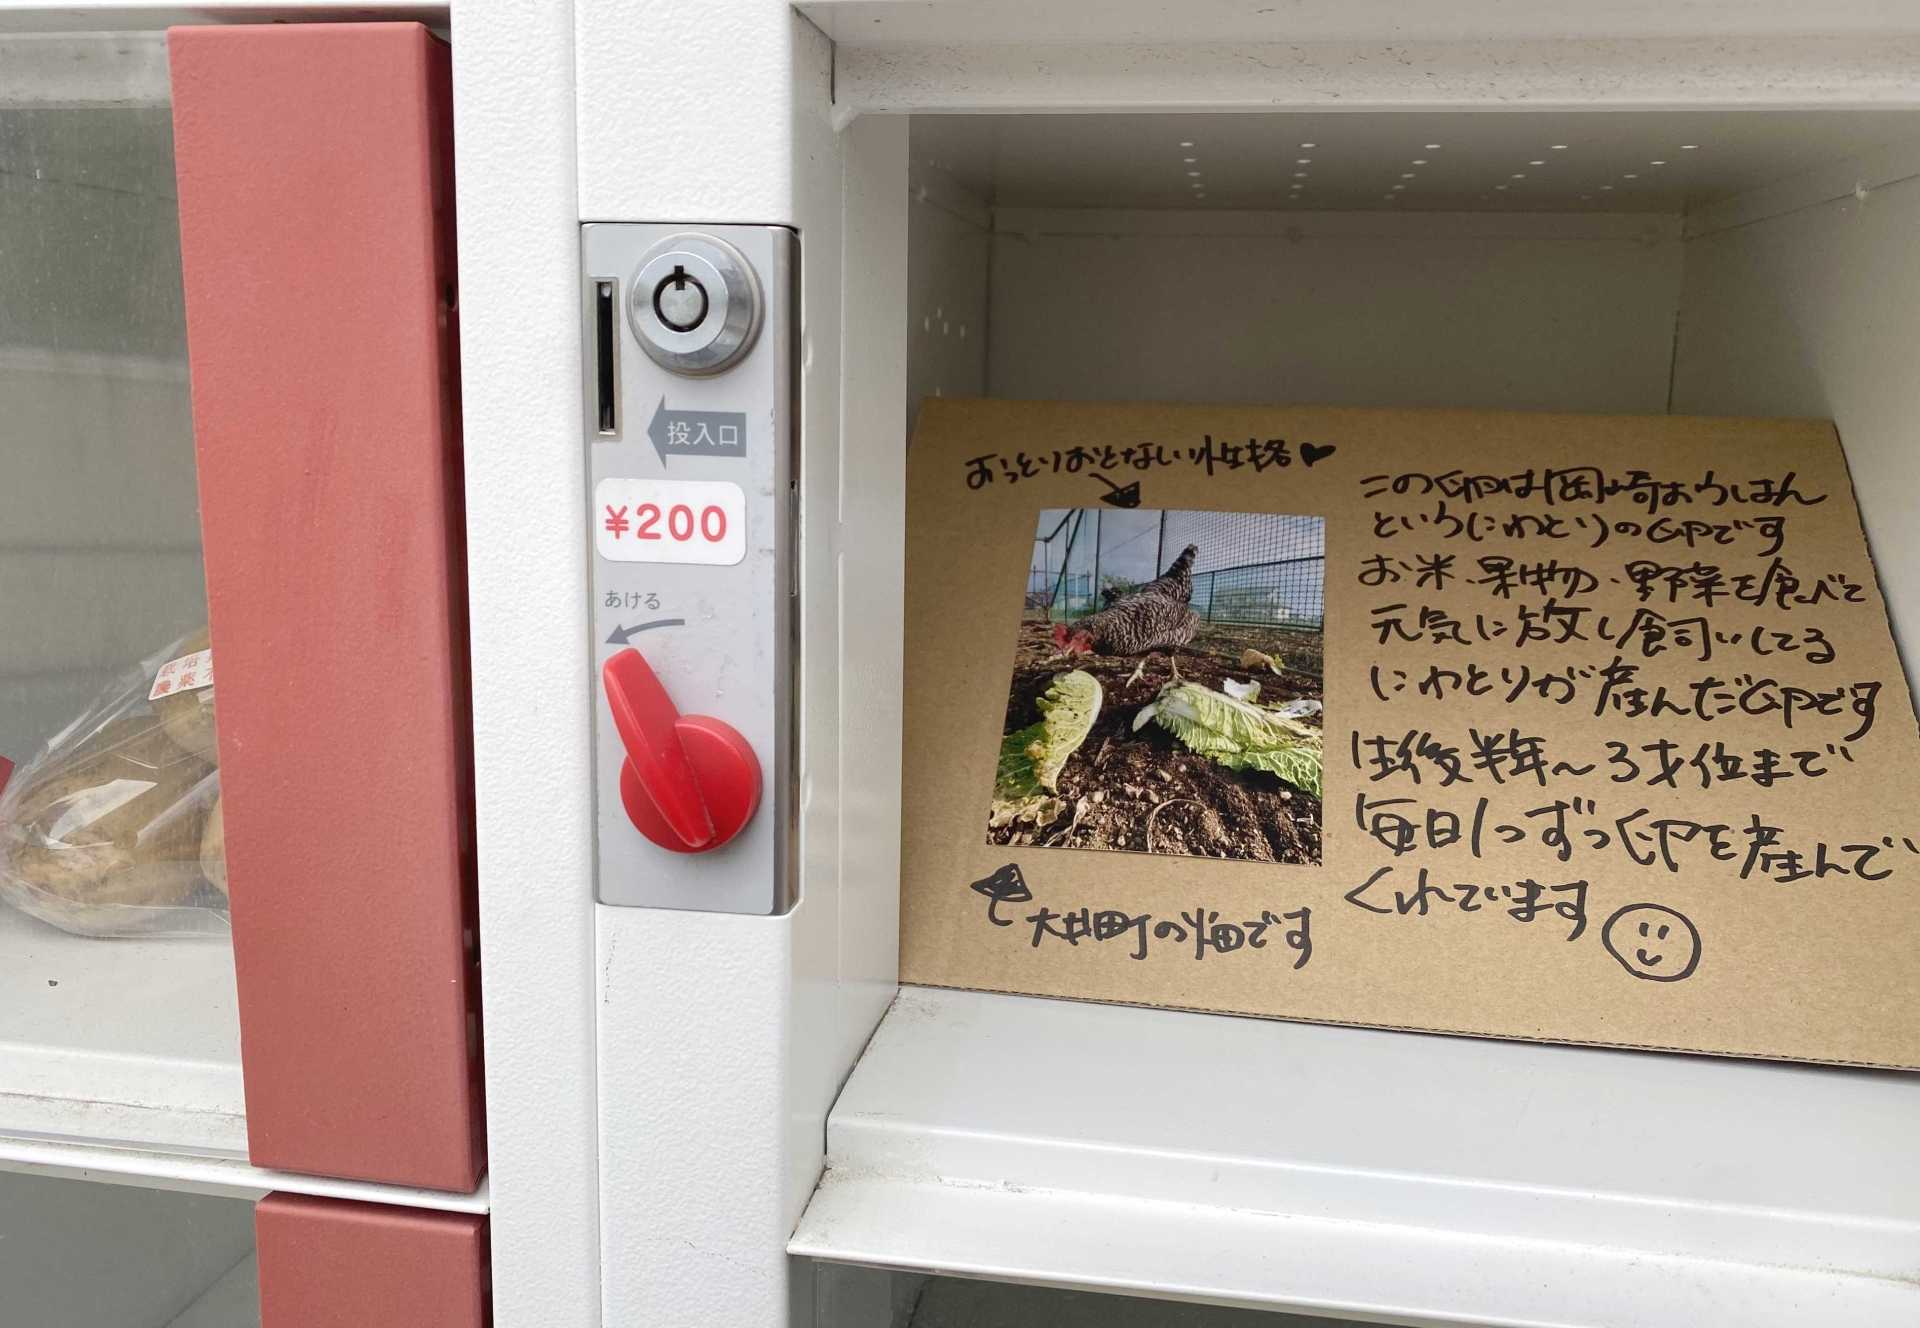 栽培
農薬不
投入口
¥200
あける
おっとりおとなしい性格♥
この卵は岡崎おうはん
というにわとりの卵です
お米、果物、野菜を食べて
元気に放し飼いしてる
にわとりが産んだ卵です
生後半年〜3才位まで
毎日1つずつ卵を産んで
くれています
大井町の畑です